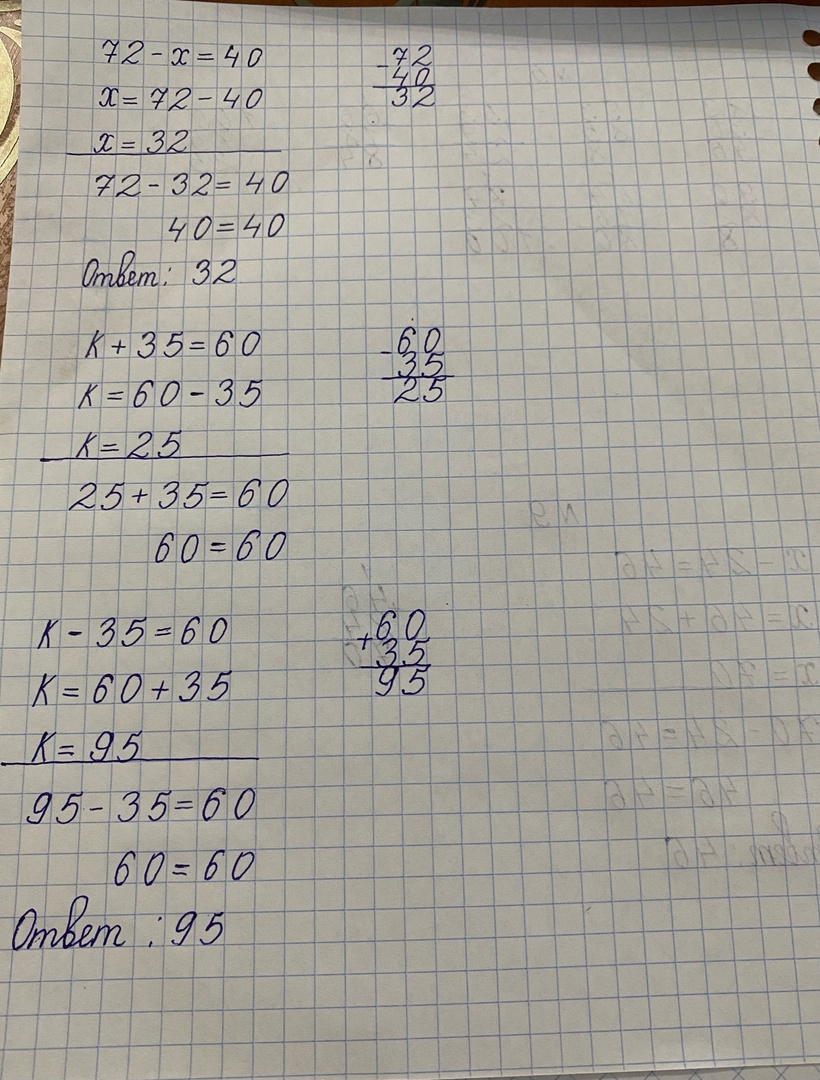 72 - x = 40
x = 72 - 40
x = 32
72 - 32 = 40
40 = 40
Ответ: 32
- 72
40
32
K + 35 = 60
K = 60 - 35
K = 25
25 + 35 = 60
60 = 60
- 60
35
25
K - 35 = 60
K = 60 + 35
K = 95
95 - 35 = 60
60 = 60
Ответ: 95
+ 60
35
95
N9
x - 24 = 46
x = 46 + 24
x = 70
70 - 24 = 46
46 = 46